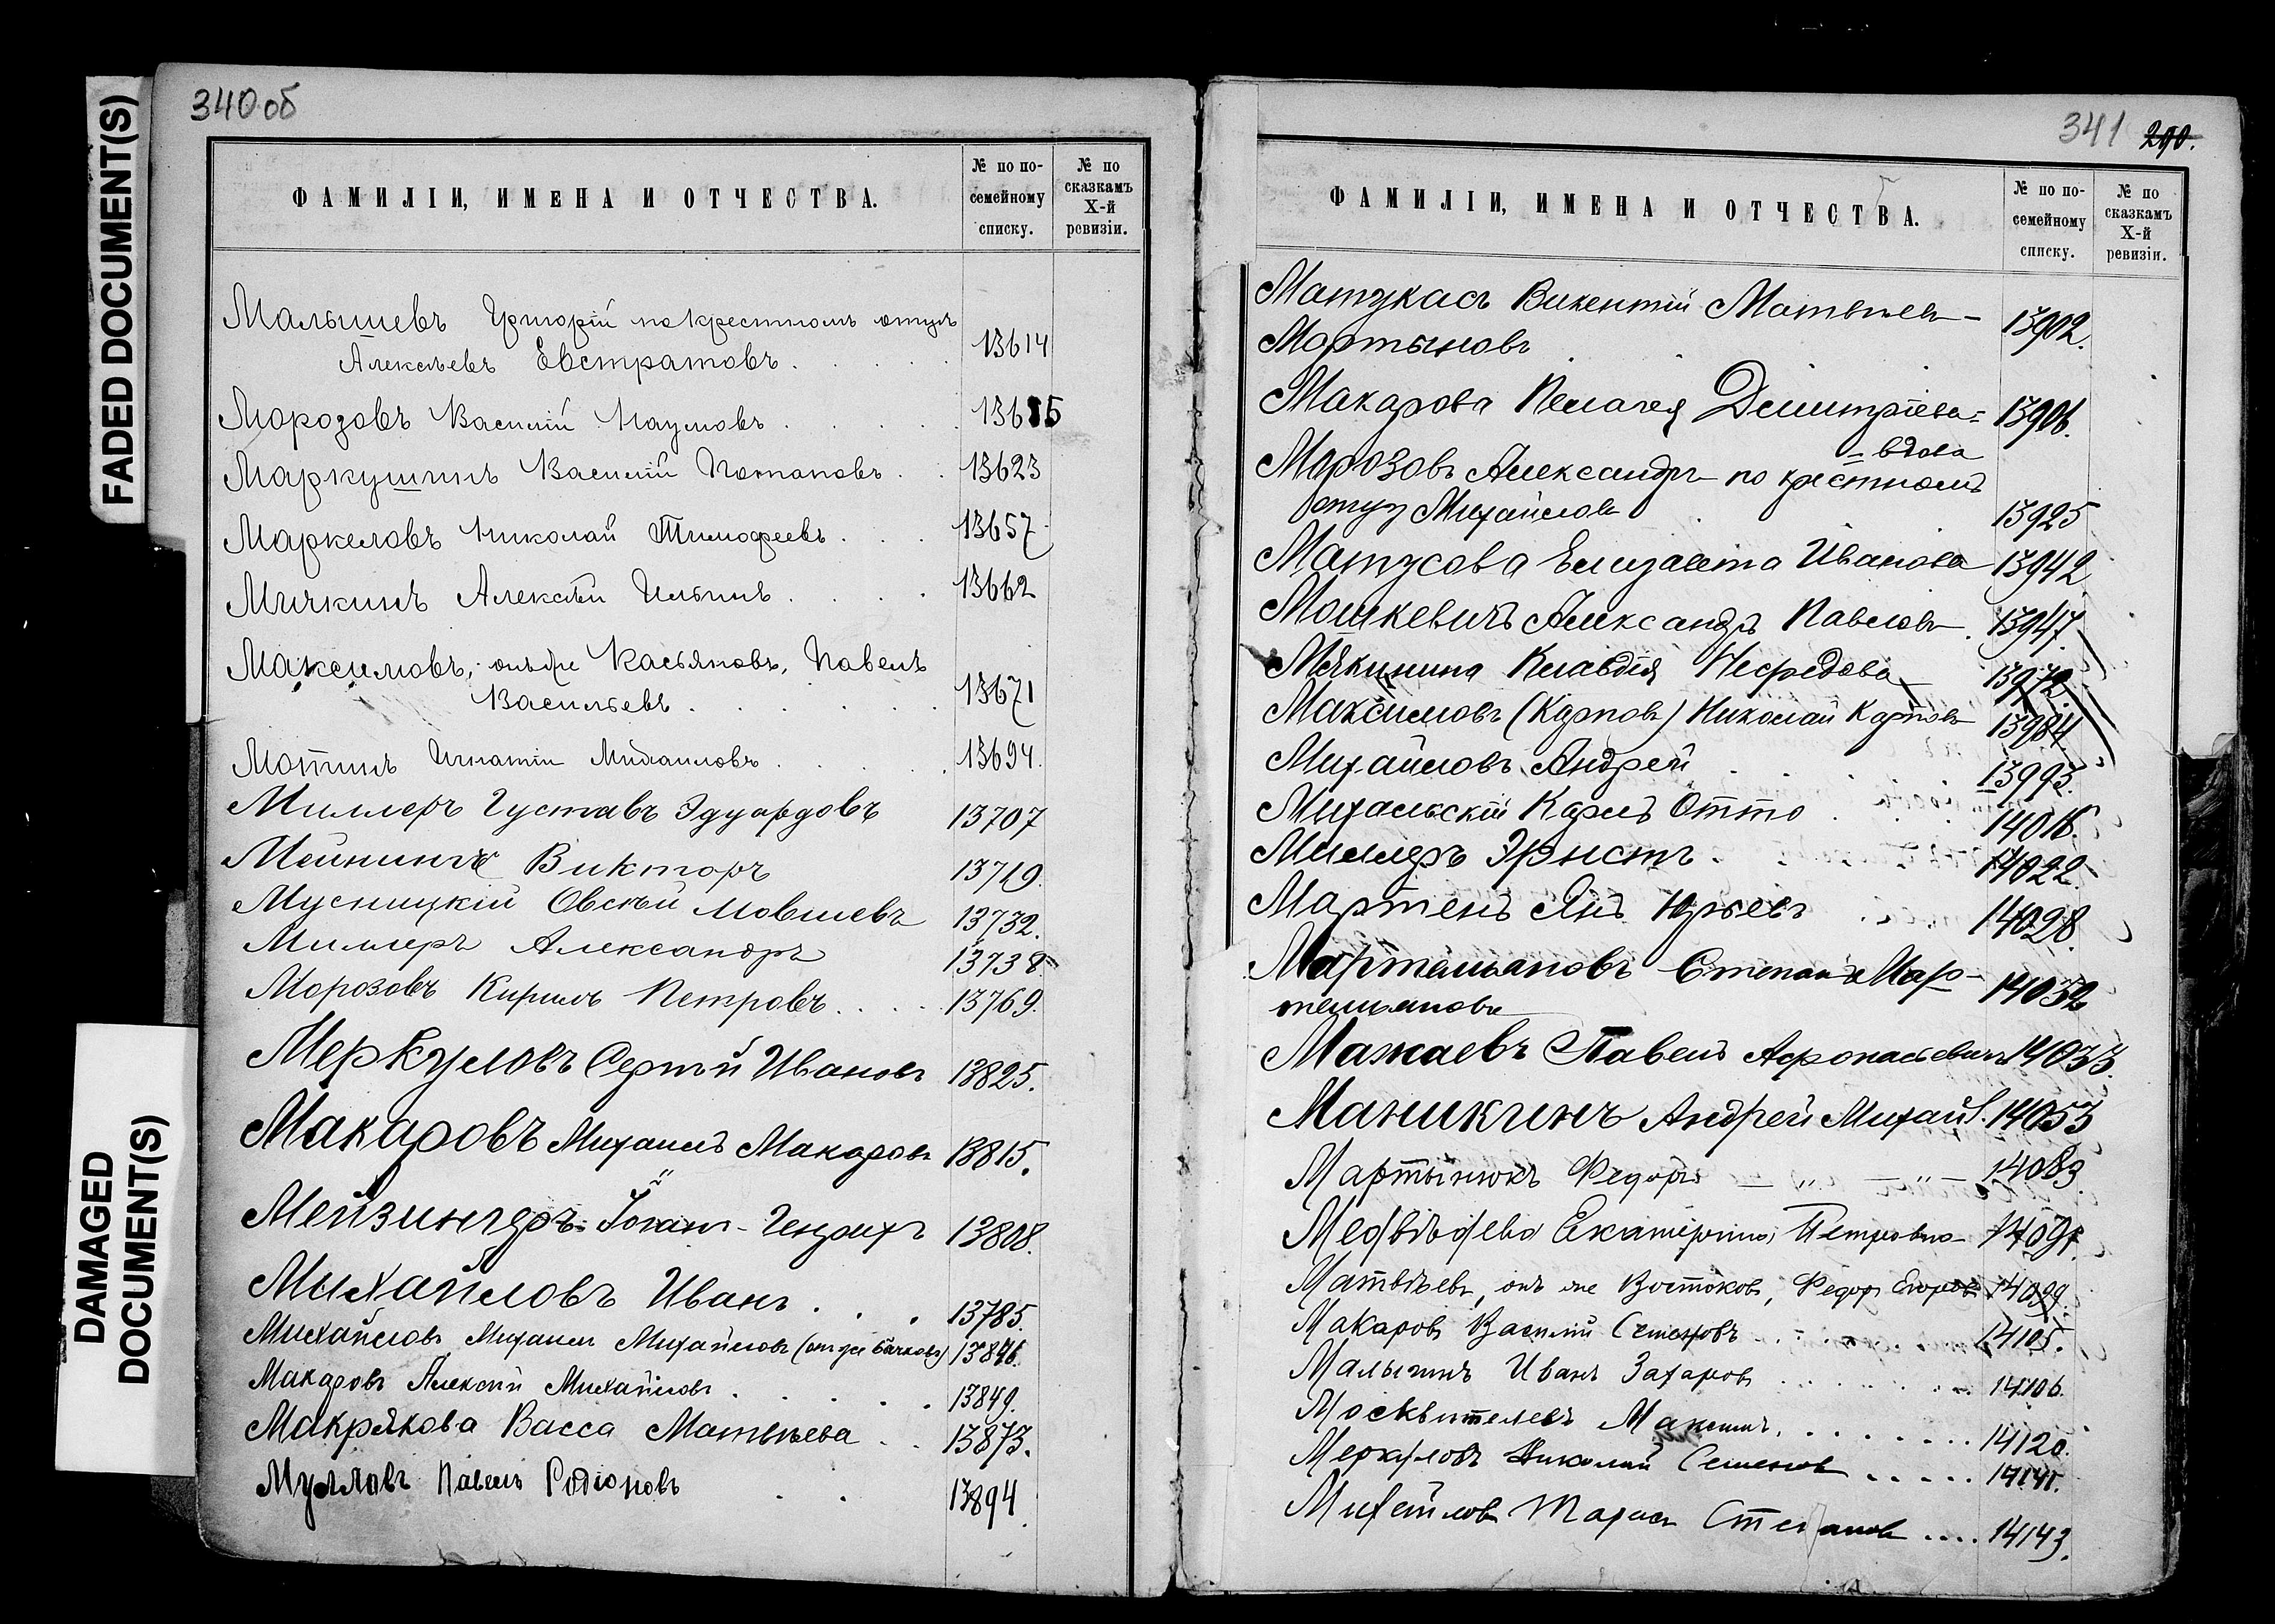 FADED DOCUMENT(S)
DAMAGED
DOCUMENT(S)
340 об
ФАМИЛІИ, ИМЕНА И ОТЧЕСТВА.
№ по по-
семейному
списку.
№ по
сказкамъ
X-й
ревизіи.
Малышевъ Григорій по крестному отцу 13614
Алексѣевъ Евстратовъ . . . .
Морозовъ Василій Наумовъ . . . . . 13615
Маркушинъ Василій Потаповъ . . 13623
Маркеловъ Николай Тимофеевъ . . . 13657
Мичкинъ Алексѣй Ильинъ . . . . 13662
Максимовъ, онъ же Касьяновъ, Павелъ
Васильевъ . . . . . . 13671
Мотинъ Игнатій Михаиловъ . . . . . 13694.
Миллеръ Густавъ Эдуардовъ 13707
Мейнингъ Викторъ 13719.
Мусницкій Овсѣй Мовшевъ 13732.
Миллеръ Александръ 13738.
Морозовъ Кирилъ Петровъ . . . . 13769.
Меркуловъ Сергѣй Ивановъ 13825.
Макаровъ Михаилъ Макаровъ 13815.
Мейзингеръ Іоганъ-Гендрихъ 13808.
Михайловъ Иванъ . . . 13785.
Михайловъ Михаилъ Михайловъ (онъ же Бачковъ) 13846.
Макаровъ Алексѣй Михайловъ . . . . . 13849.
Макрякова Васса Матвѣева . . 13873.
Мулловъ Павелъ Родіоновъ . . 13894.
341 290.
ФАМИЛІИ, ИМЕНА И ОТЧЕСТВА.
№ по по-
семейному
списку.
№ по
сказкамъ
X-й
ревизіи.
Матукасъ Викентій Матвѣев- 13902.
Мартыновъ .
Макарова Пелагея Дмитріева= 13906.
= вдова
Морозовъ Александръ по крестномъ
отцу Михайловъ . 13925
Матусова Елизавета Иванова 13942
Мошкевичъ Александръ Павловъ . 13947
Мякинина Клавдія Нефедова 13972
Максимовъ (Карповъ) Николай Карповъ 13984
Михайловъ Андрей . . . . 13993.
Михальскій Карлъ Отто . . . 14016.
Миллеръ Эрнстъ . 14022.
Мартенъ Янъ Юрьевъ . 14028.
Мартемьяновъ Степанъ Мар- 14032
темьяновъ
Мажаевъ Павелъ Афонасьевичъ 14033.
Маникинъ Андрей Михайл. 14053
Мартынюкъ Федоръ — „ — „ — 14083.
Медвѣдева Екатерина Петровна 14091.
Матвѣевъ, онъ же Востоковъ, Федоръ Егоровъ 14099.
Макаровъ Василій Семеновъ . . . . . 14105.
Малыгинъ Иванъ Захаровъ . . . . . . . . 14106.
Москвителевъ Максимъ . . . . . . . . 14120.
Меркуловъ Николай Семеновъ . . . . . 14141.
Михайловъ Тарасъ Степановъ . . . . 14143.